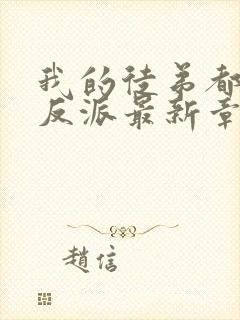 我的徒弟都
反派最新章
趙信